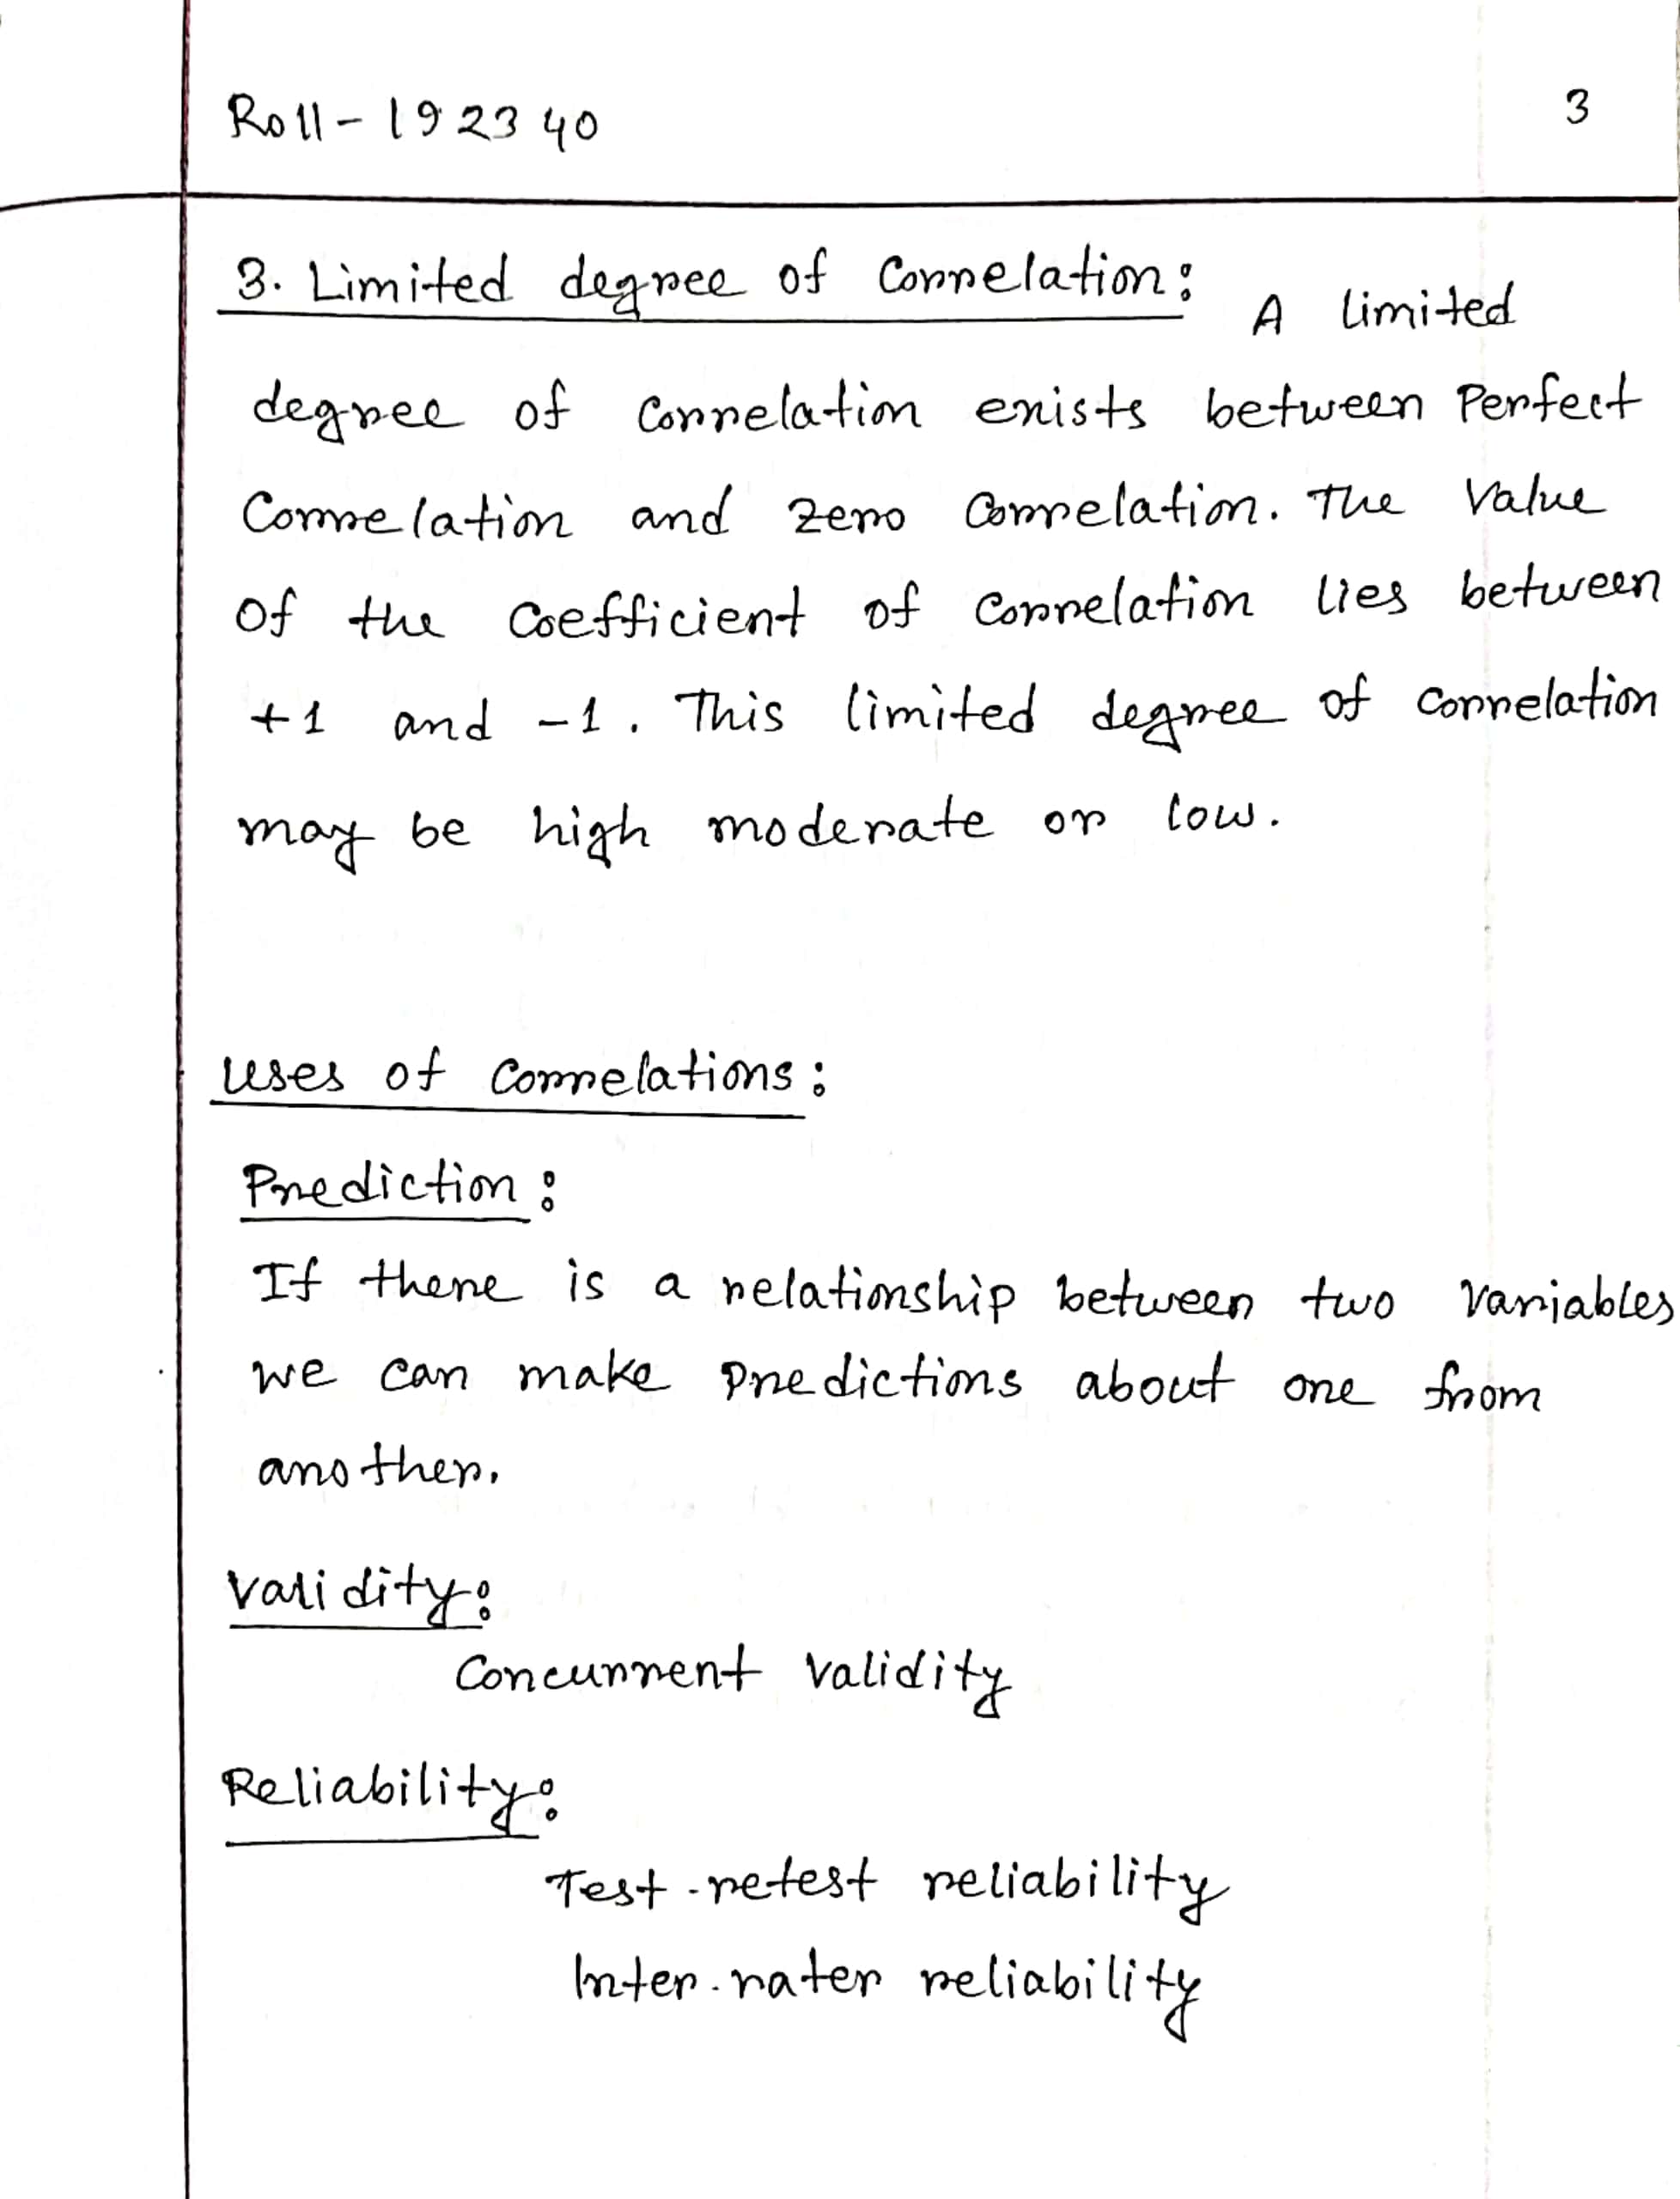 Roll - 192340
3
3. Limited degree of Correlation: A limited
degree of Correlation exists between Perfect
Correlation and zero Correlation. The Value
of the Coefficient of Correlation lies between
+1 and -1. This limited degree of Correlation
may be high moderate or low.
Uses of Correlations:
Prediction:
If there is a relationship between two variables
we can make predictions about one from
another.
Validity:
Concurrent Validity
Reliability:
Test-retest reliability
Inter-rater reliability